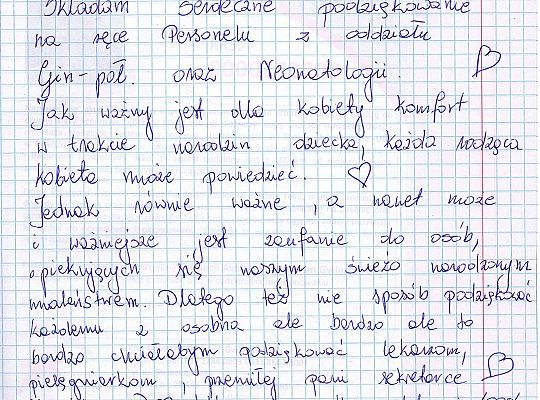 Składam serdeczne podziękowanie
na ręce Personelu z oddziału
Gin-poł. oraz Neonatologii.
Jak ważny jest dla kobiety komfort
w trakcie narodzin dziecka, każda rodząca
kobieta może powiedzieć.
Jednak równie ważne, a nawet może
i ważniejsze jest zaufanie do osób,
opiekujących się naszym świeżo narodzonym
maleństwem. Dlatego też nie sposób podziękować
każdemu z osobna ale bardzo ale to
bardzo chciałabym podziękować lekarzom,
pielęgniarkom, przemiłej pani sekretarce